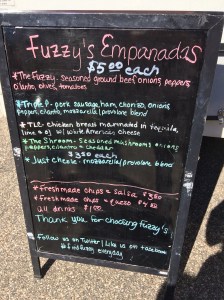 Fuzzy's Empanadas
$5.00 each
*The Fuzzy - Seasoned ground beef, onions, peppers,
cilantro, olives, tomatoes
*Triple P - pork sausage, ham, chorizo, onions,
peppers, cilantro, mozzarella/provolone blend
*TLC - chicken breast marinated in tequila,
lime & w/ White American cheese
*The Shroom - Seasoned mushrooms, onions,
peppers, cilantro + cheddar
$3.50 each
*Just cheese - mozzarella/provolone blend
*fresh made chips + salsa $3.50
*fresh made chips +
all drinks $1.00
Thank you for choosing fuzzy's
Follow us on Twitter | Like us on facebook
& find fuzzy everyday